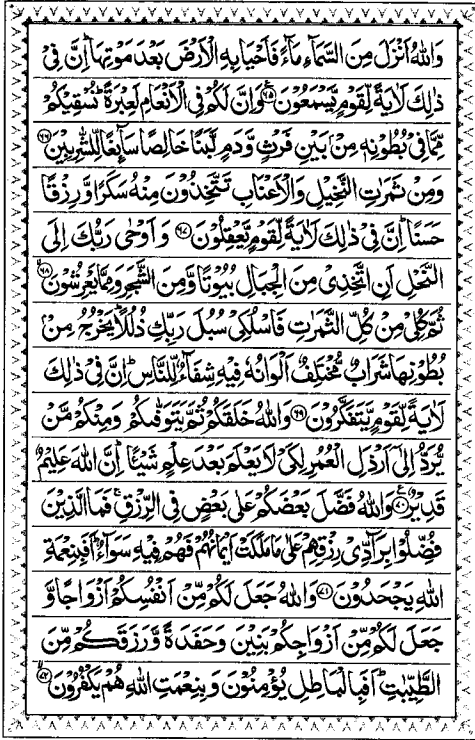 وَاللّٰهُ اَنْزَلَ مِنَ السَّمَآءِ مَآءً فَاَحْيَا بِهِ الْاَرْضَ بَعْدَ مَوْتِهَا ؕ اِنَّ فِىْ
ذٰلِكَ لَاٰيَةً لِّقَوْمٍ يَّسْمَعُوْنَ ﴿۶۵﴾ وَاِنَّ لَكُمْ فِى الْاَنْعَامِ لَعِبْرَةً ؕ نُسْقِيْكُمْ
مِّمَّا فِىْ بُطُوْنِهٖ مِنْۢ بَيْنِ فَرْثٍ وَّدَمٍ لَّبَنًا خَالِصًا سَآئِغًا لِّلشّٰرِبِيْنَ ﴿۶۶﴾
وَمِنْ ثَمَرٰتِ النَّخِيْلِ وَالْاَعْنَابِ تَتَّخِذُوْنَ مِنْهُ سَكَرًا وَّرِزْقًا
حَسَنًا ؕ اِنَّ فِىْ ذٰلِكَ لَاٰيَةً لِّقَوْمٍ يَّعْقِلُوْنَ ﴿۶۷﴾ وَاَوْحٰى رَبُّكَ اِلَى
النَّحْلِ اَنِ اتَّخِذِىْ مِنَ الْجِبَالِ بُيُوْتًا وَّمِنَ الشَّجَرِ وَمِمَّا يَعْرِشُوْنَ ﴿۶۸﴾
ثُمَّ كُلِىْ مِنْ كُلِّ الثَّمَرٰتِ فَاسْلُكِىْ سُبُلَ رَبِّكِ ذُلُلًا ؕ يَخْرُجُ مِنْۢ
بُطُوْنِهَا شَرَابٌ مُّخْتَلِفٌ اَلْوَانُهٗ فِيْهِ شِفَآءٌ لِّلنَّاسِ ؕ اِنَّ فِىْ ذٰلِكَ
لَاٰيَةً لِّقَوْمٍ يَّتَفَكَّرُوْنَ ﴿۶۹﴾ وَاللّٰهُ خَلَقَكُمْ ثُمَّ يَتَوَفّٰىكُمْ وَمِنْكُمْ مَّنْ
يُّرَدُّ اِلٰٓى اَرْذَلِ الْعُمُرِ لِكَىْ لَا يَعْلَمَ بَعْدَ عِلْمٍ شَيْـًٔا ؕ اِنَّ اللّٰهَ عَلِيْمٌ
قَدِيْرٌ ﴿۷۰﴾ وَاللّٰهُ فَضَّلَ بَعْضَكُمْ عَلٰى بَعْضٍ فِى الرِّزْقِ ۚ فَمَا الَّذِيْنَ
فُضِّلُوْا بِرَآدِّىْ رِزْقِهِمْ عَلٰى مَا مَلَكَتْ اَيْمَانُهُمْ فَهُمْ فِيْهِ سَوَآءٌ ؕ اَفَبِنِعْمَةِ
اللّٰهِ يَجْحَدُوْنَ ﴿۷۱﴾ وَاللّٰهُ جَعَلَ لَكُمْ مِّنْ اَنْفُسِكُمْ اَزْوَاجًا وَّ
جَعَلَ لَكُمْ مِّنْ اَزْوَاجِكُمْ بَنِيْنَ وَحَفَدَةً وَّرَزَقَكُمْ مِّنَ
الطَّيِّبٰتِ ؕ اَفَبِالْبَاطِلِ يُؤْمِنُوْنَ وَبِنِعْمَتِ اللّٰهِ هُمْ يَكْفُرُوْنَ ﴿۷۲﴾